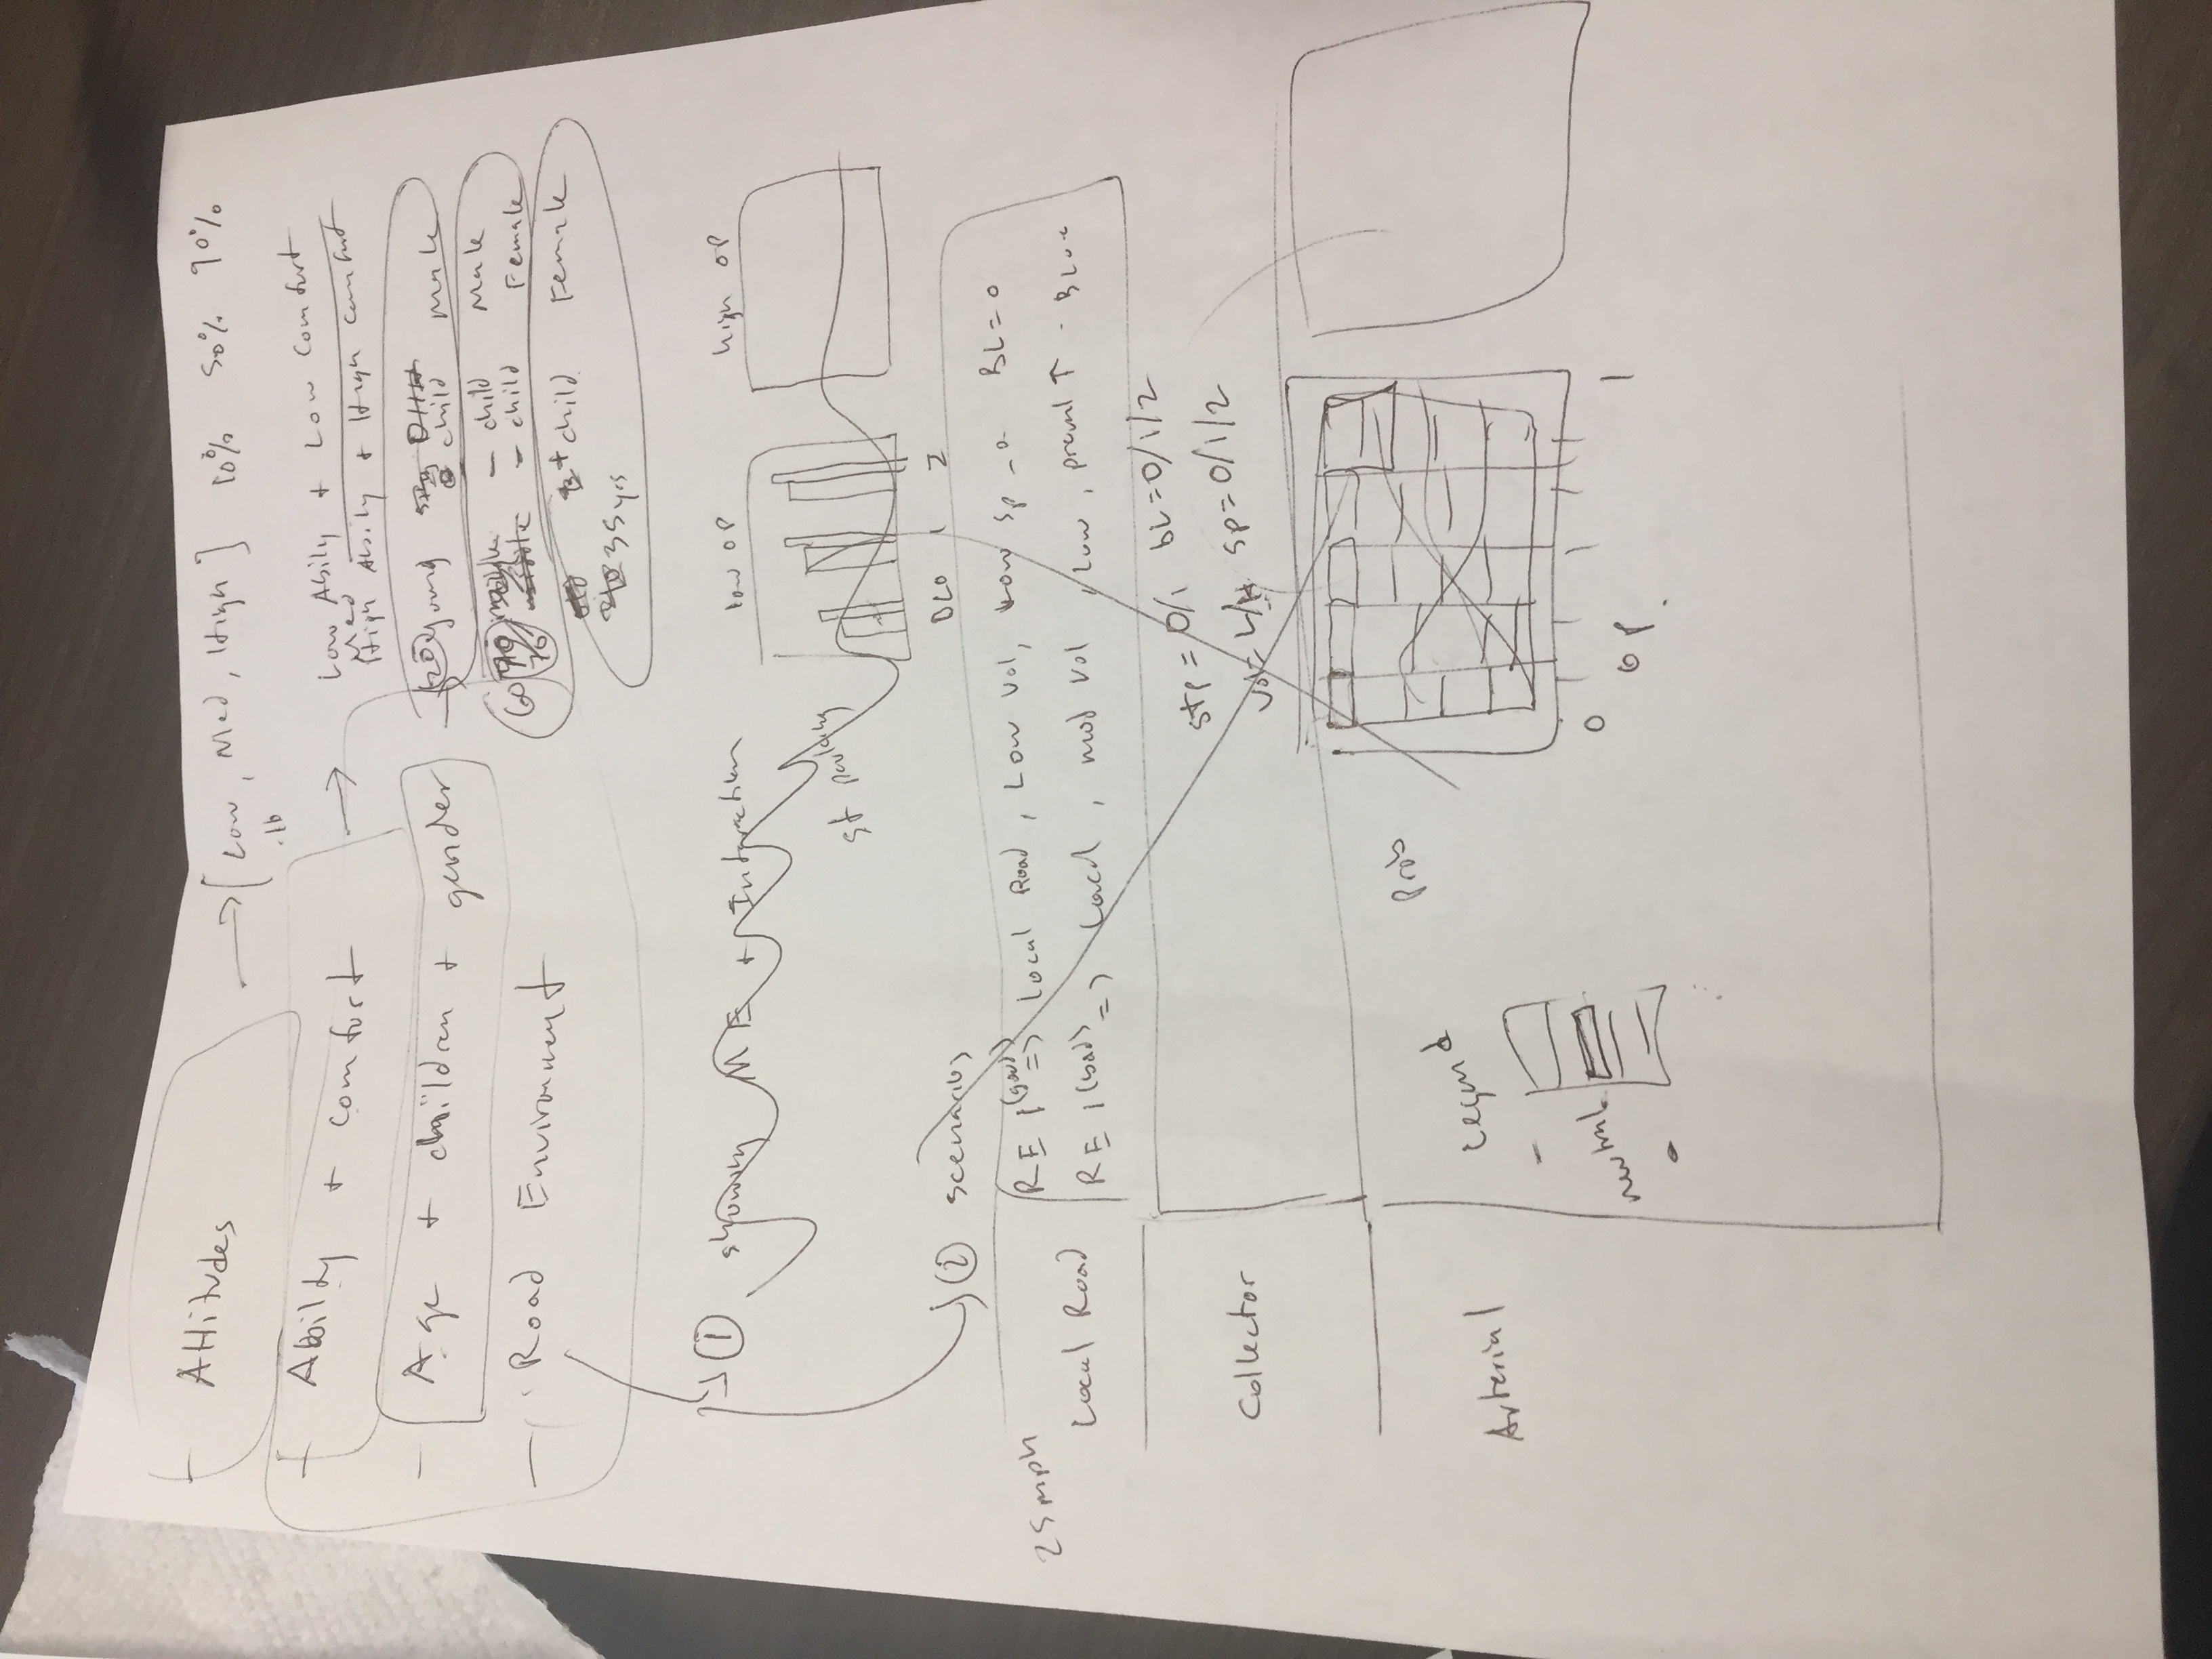 - Attitudes → [Low, Med, High] 10% 50% 90%
.16
- Ability + comfort → Low Ability + Low Comfort
Med
High Ability + High Comfort
- Age + children + gender
20 young 0 child Male
60 70 - child Male
- child Female
2+ child Female
35 yrs
- Road Environment
① showing ME + Interaction
low OP high OP
st parking
BL0 1 2
② scenarios
25mph
Local Road
RE 1 (good) => Local Road, Low Vol, Low sp BL=0
RE 1 (bad) => Local, mod Vol, Low, ↑
stp = 0/1 bL=0/1/2
Vol= L/H sp=0/1/2
Collector
Arterial
Prob
Legend
-
neutral
0 1
OP